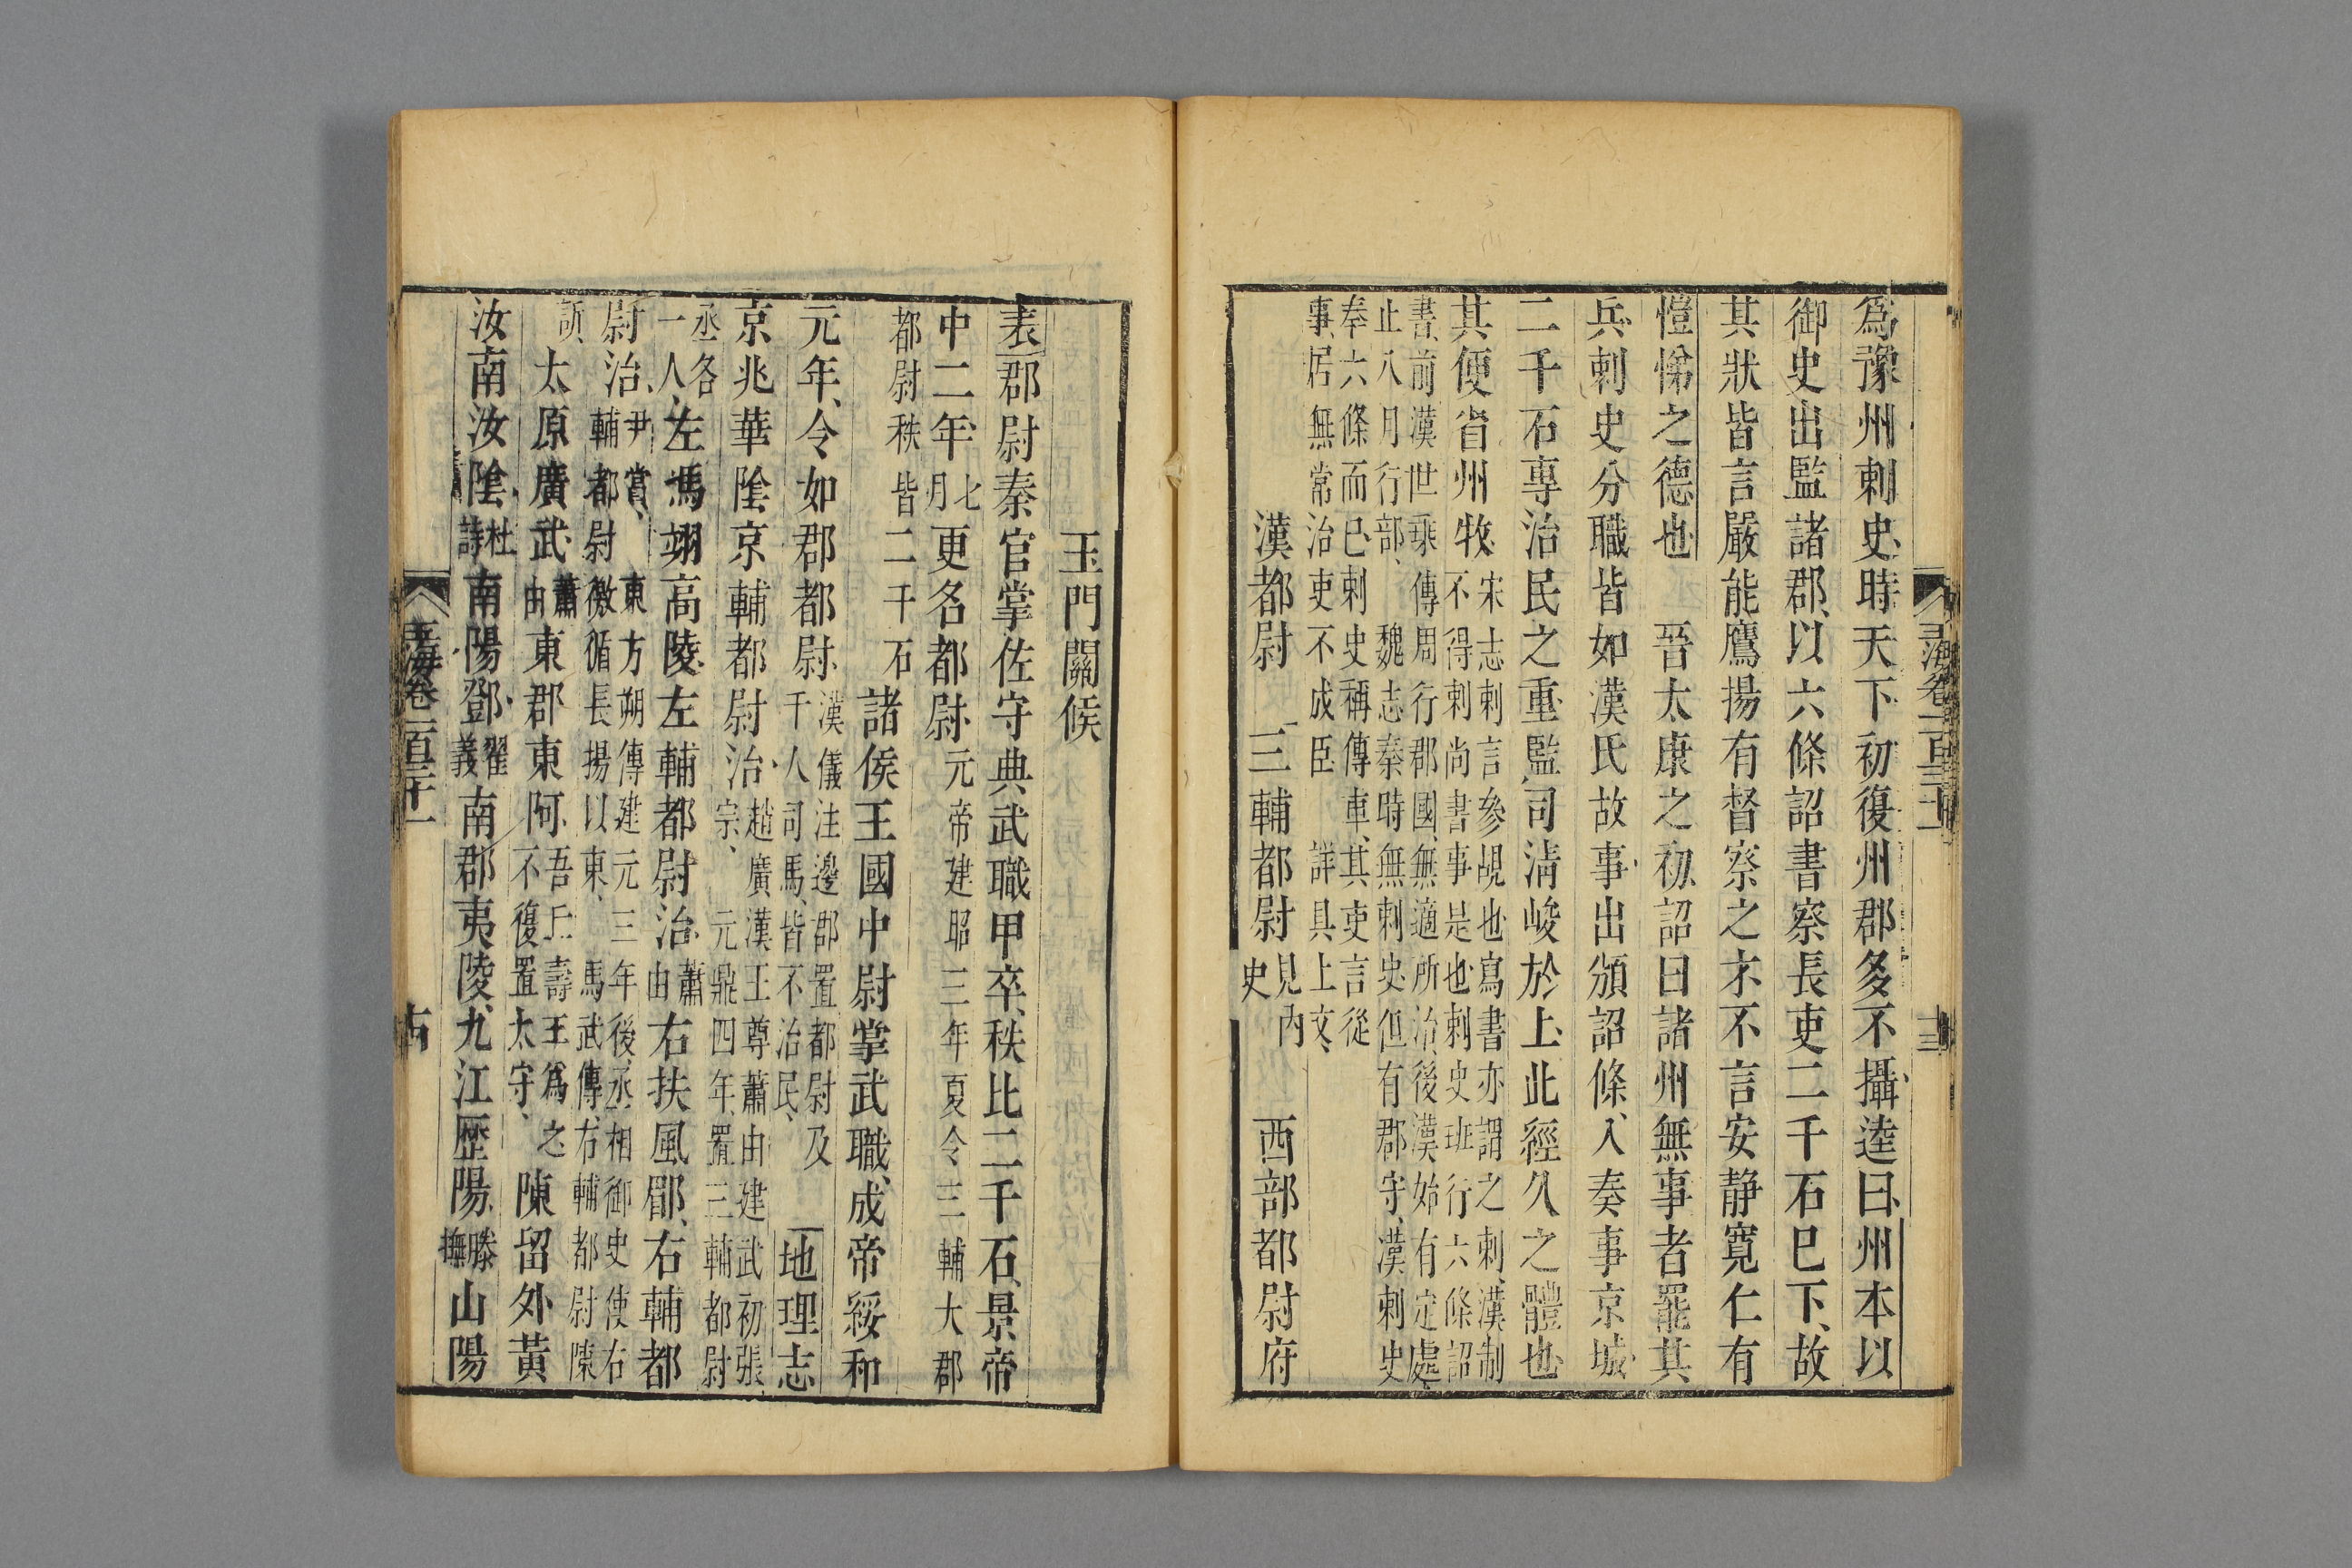 爲豫州刺史時天下初復州郡多不攝逵曰州本以
御史出監諸郡以六條詔書察長吏二千石已下故
其狀皆言嚴能鷹揚有督察之才不言安静寛仁有
愷悌之德也 晉太康之初詔曰諸州無事者罷其
兵刺史分職皆如漢氏故事出頒詔條入奏事京城
二千石專治民之重監司清峻於上此經久之體也
其便省州牧
宋志刺言參覘也寫書亦謂之刺漢制
不得刺尚書事是也刺史班行六條詔
書前漢世乘傳周行郡國無適所治後漢始有定處
止八月行部 魏志秦時無刺史但有郡守漢刺史
奉六條而巳刺史稱傳車其吏言從
事居無常治吏不成臣 詳具上文
漢都尉 三輔都尉
見内
史
西部都尉府
玉海卷一百三十一
十三
玉門關候
表郡尉秦官掌佐守典武職甲卒秩比二千石景帝
中二年
七
月
更名都尉
元帝建昭三年夏令三輔大郡
都尉秩皆二千石
諸侯王國中尉掌武職成帝綏和
元年令如郡都尉
漢儀注邊郡置都尉及
千人司馬皆不治民
地理志
京兆華陰京輔都尉治
趙廣漢王尊蕭由建武初張
宗 元鼎四年置三輔都尉
丞各
一人
左馮翊高陵左輔都尉治
蕭
由
右扶風郿右輔都
尉治
尹賞 東方朔傳建元三年後丞相御史使右
輔都尉徼循長楊以東 馬武傳右輔都尉陳
訢
太原廣武
蕭
由
東郡東阿
吾丘壽王爲之
不復置太守
陳留外黃
汝南汝陰
杜
詩
南陽鄧
翟
義
南郡夷陵九江歷陽
滕
撫
山陽
玉海卷一百三十一
古